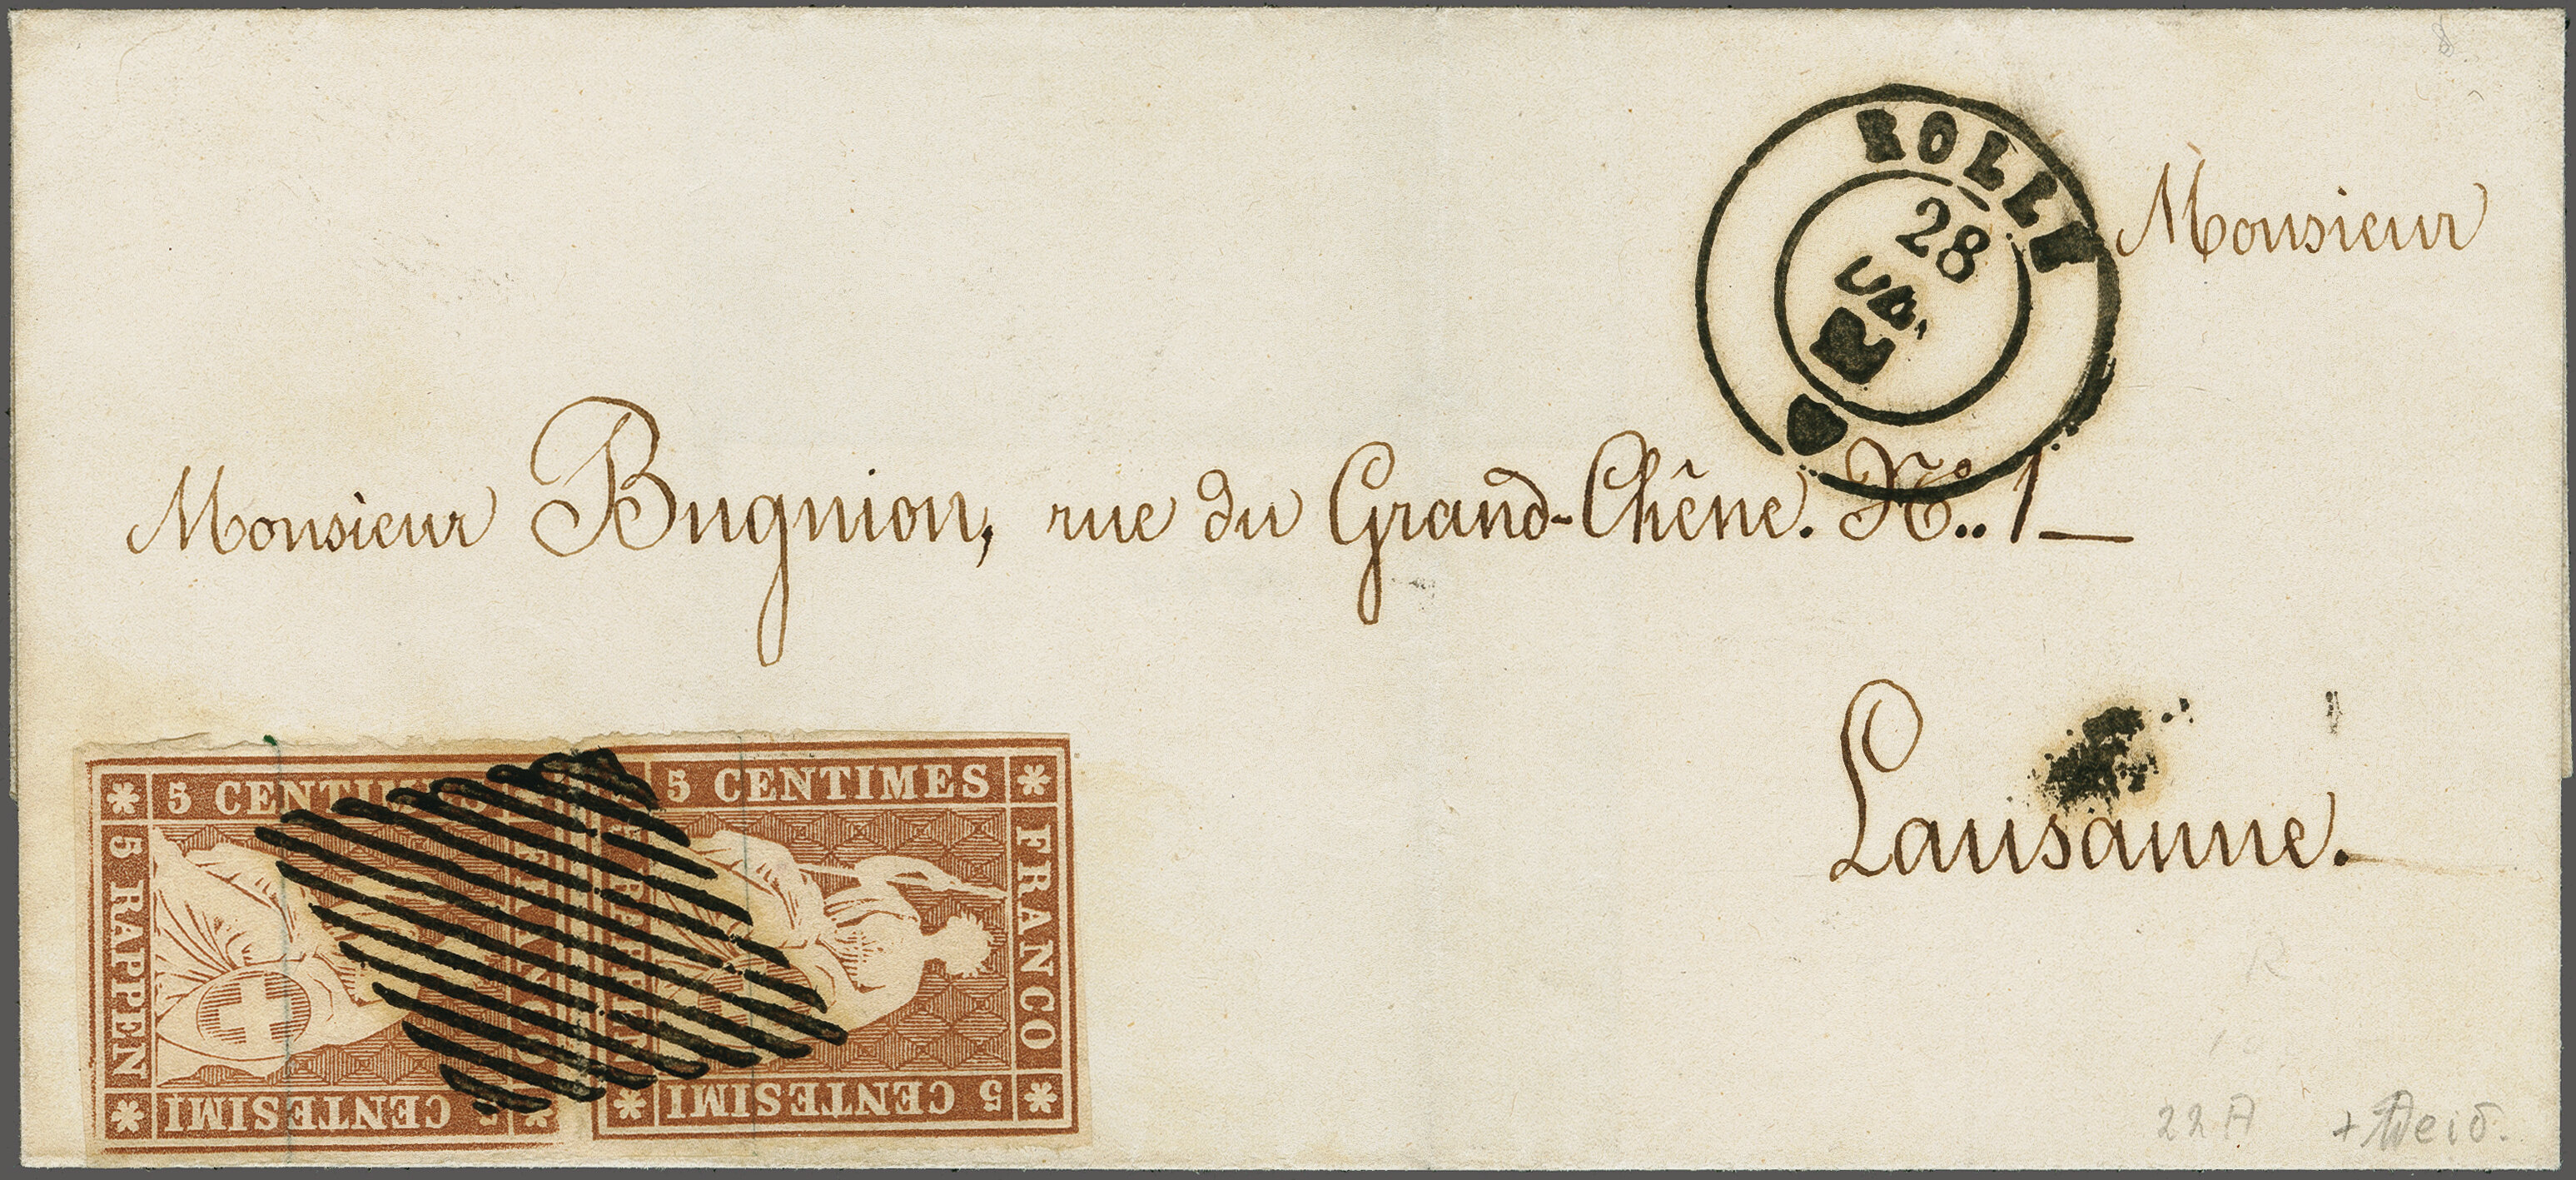 ROLLE
28
Monsieur
Monsieur Bugnion, rue du Grand-Chêne. No.. 1_
Lausanne.
5 CENTIMES
5 RAPPEN
5 CENTESIMI
5 CENTIMES
FRANCO
5 CENTESIMI
22A